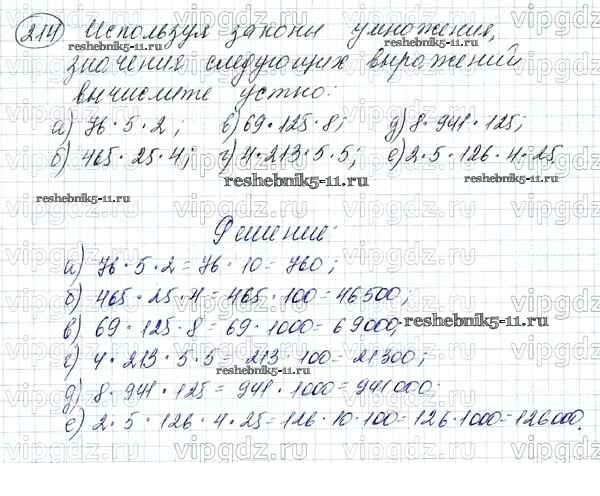 214) Используя законы умножения,
значения следующих выражений
вычислите устно:
а) 76 · 5 · 2; в) 69 · 125 · 8; д) 8 · 941 · 125;
б) 465 · 25 · 4; г) 4 · 213 · 5 · 5; е) 2 · 5 · 126 · 4 · 25.
Решение:
а) 76 · 5 · 2 = 76 · 10 = 760;
б) 465 · 25 · 4 = 465 · 100 = 46500;
в) 69 · 125 · 8 = 69 · 1000 = 69000;
г) 4 · 213 · 5 · 5 = 213 · 100 = 21300;
д) 8 · 941 · 125 = 941 · 1000 = 941000;
е) 2 · 5 · 126 · 4 · 25 = 126 · 10 · 100 = 126 · 1000 = 126000.
reshebnik5-11.ru
reshebnik5-11.ru
reshebnik5-11.ru
reshebnik5-11.ru
reshebnik5-11.ru
reshebnik5-11.ru
vipgdz.com